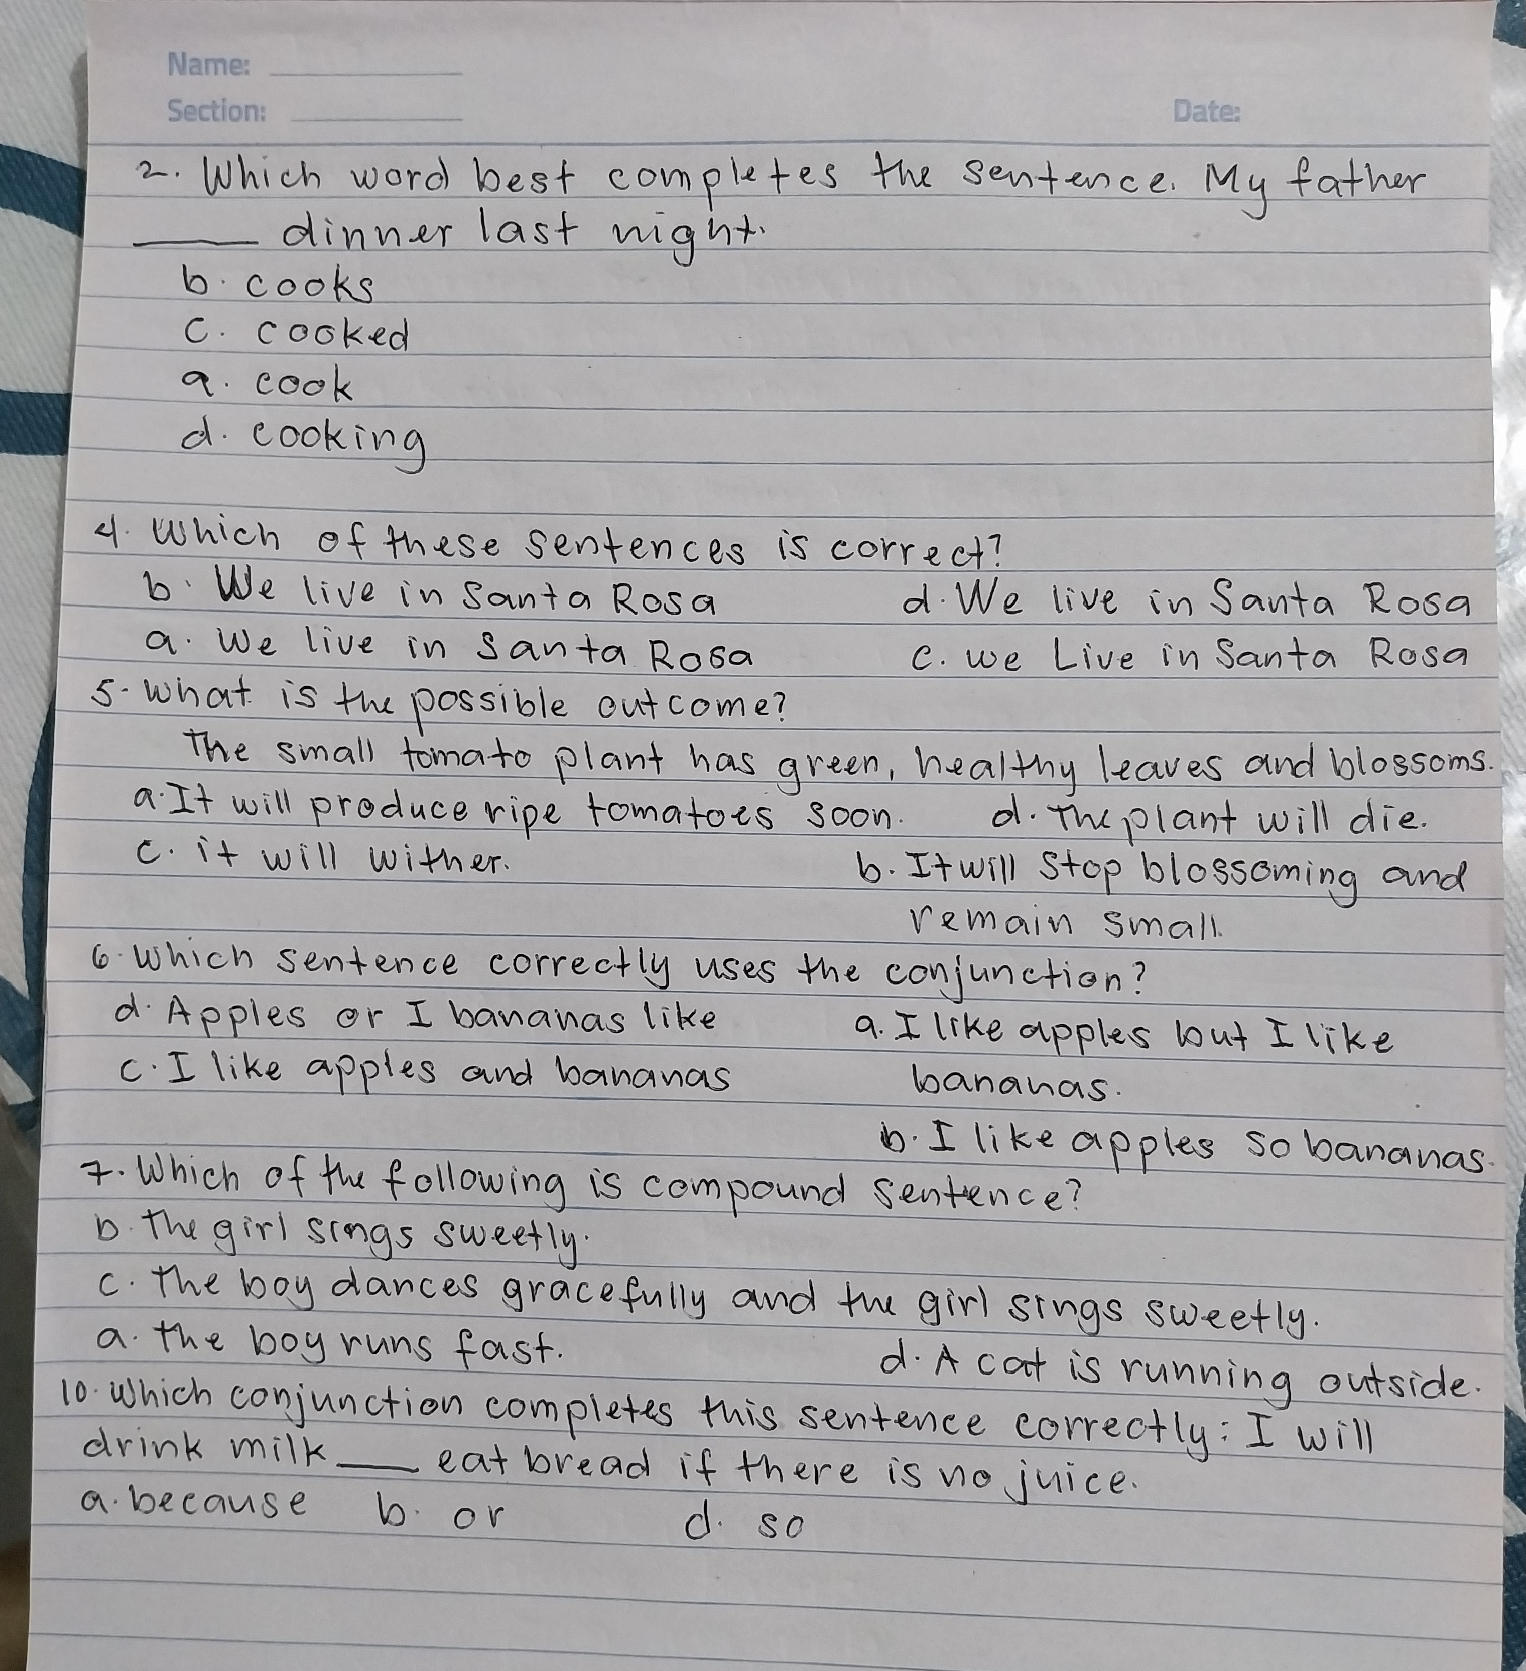 Name:
Section:
Date:
2. Which word best completes the sentence. My father
____ dinner last night.
b. cooks
c. cooked
a. cook
d. cooking
4. Which of these sentences is correct?
b. We live in Santa Rosa
d. We live in Santa Rosa
a. We live in Santa Rosa
c. we Live in Santa Rosa
5. What is the possible outcome?
The small tomato plant has green, healthy leaves and blossoms.
a. It will produce ripe tomatoes soon.
d. The plant will die.
c. it will wither.
b. It will stop blossoming and
remain small.
6. Which sentence correctly uses the conjunction?
d. Apples or I bananas like
a. I like apples but I like
c. I like apples and bananas
bananas.
b. I like apples so bananas.
7. Which of the following is compound sentence?
b. The girl sings sweetly.
c. The boy dances gracefully and the girl sings sweetly.
a. The boy runs fast.
d. A cat is running outside.
10. Which conjunction completes this sentence correctly: I will
drink milk ____ eat bread if there is no juice.
a. because b. or d. so